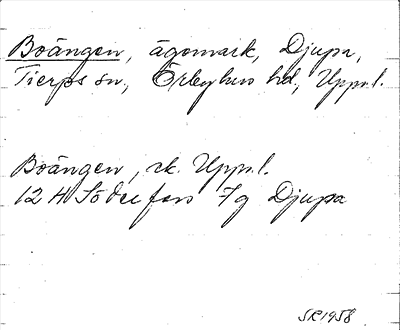 Boängen, ägomark, Djupa,
Tierps sn, Örbyhus hd, Uppl.
Boängen, ek. Uppl.
12 H Söderfors 7g Djupa
SR 1958